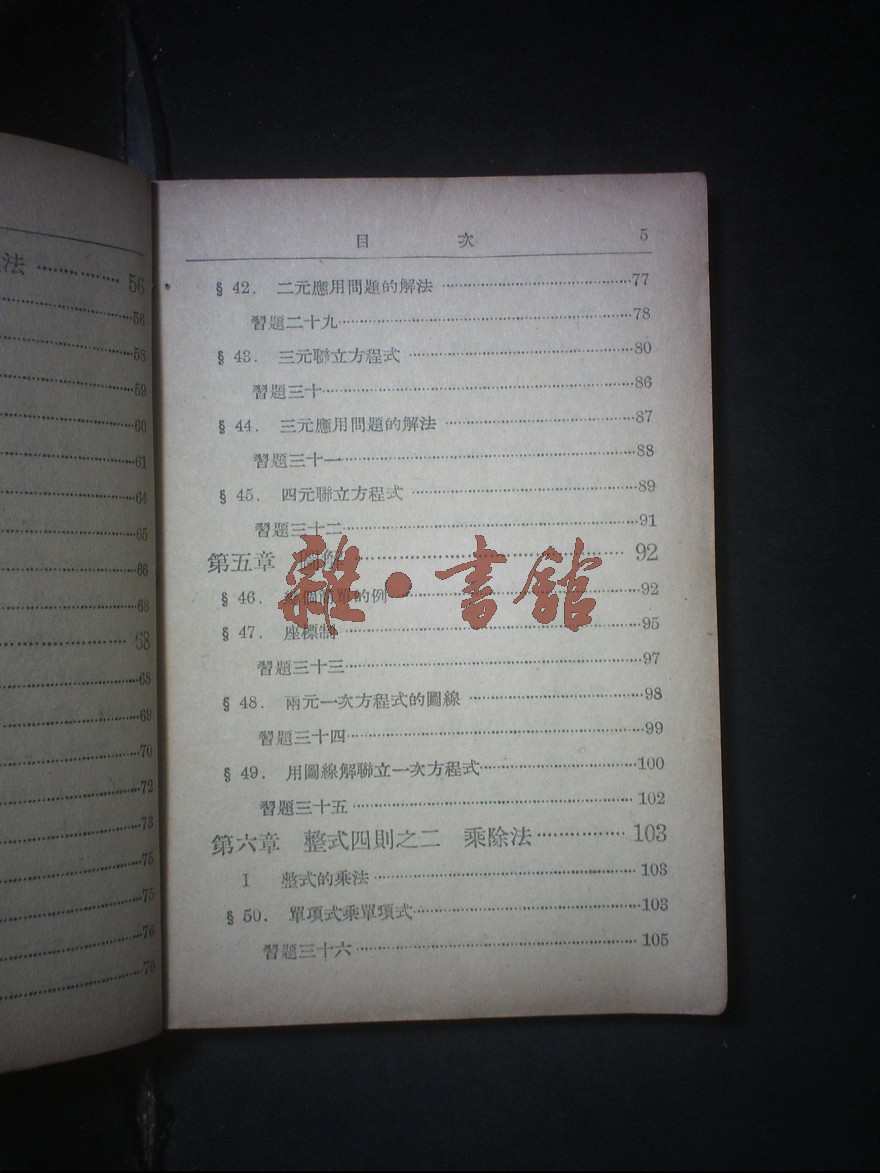 法 ………… 56
……56
……58
……59
……60
……61
……64
……65
……66
……68
……68
……68
……69
……70
……72
……73
……75
……75
……76
……76
目 次 5
§ 42. 二元應用問題的解法 ……77
習題二十九……78
§ 43. 三元聯立方程式 ……80
習題三十……86
§ 44. 三元應用問題的解法 ……87
習題三十一……88
§ 45. 四元聯立方程式 ……89
習題三十二……91
第五章 圖解 ……92
§ 46. 個簡單的例……92
§ 47. 座標制 ……95
習題三十三……97
§ 48. 兩元一次方程式的圖線 ……98
習題三十四……99
§ 49. 用圖線解聯立一次方程式……100
習題三十五……102
第六章 整式四則之二 乘除法……103
I 整式的乘法……103
§ 50. 單項式乘單項式……103
習題三十六……105
雜·書館